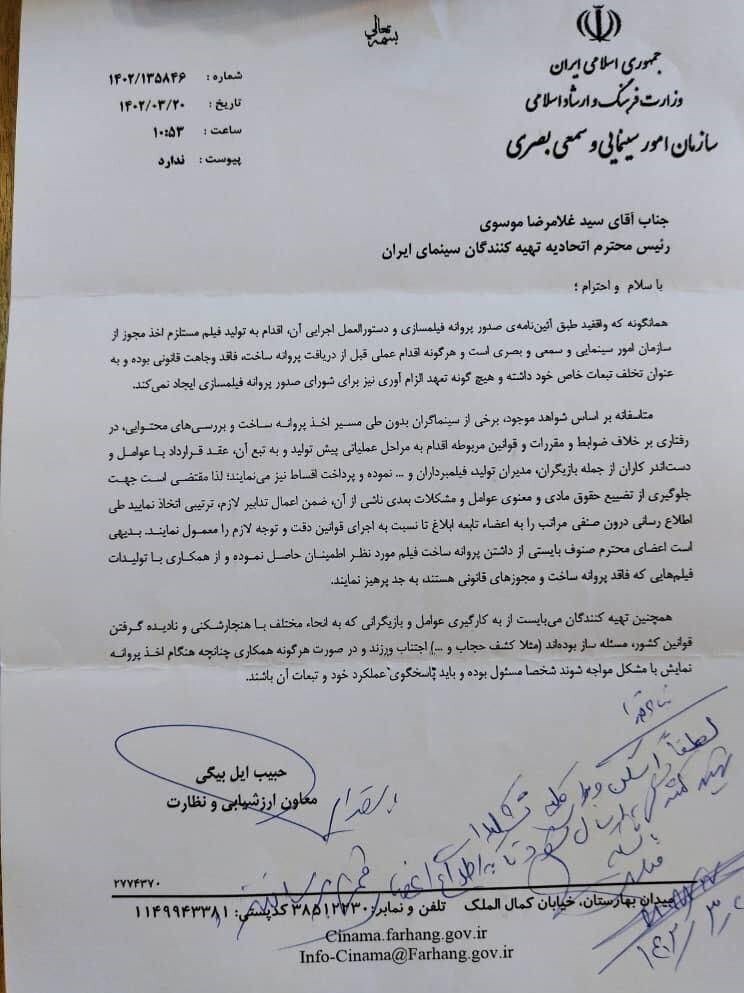 بسمه تعالی
جمهوری اسلامی ایران
وزارت فرهنگ و ارشاد اسلامی
سازمان امور سینمایی و سمعی بصری
شماره : ۱۴۰۲/۱۳۵۸۴۶
تاریخ : ۱۴۰۲/۰۳/۲۰
ساعت : ۱۰:۵۳
پیوست : ندارد
جناب آقای سید غلامرضا موسوی
رئیس محترم اتحادیه تهیه کنندگان سینمای ایران
با سلام و احترام ؛
همانگونه که واقفید طبق آئین‌نامه‌ی صدور پروانه فیلمسازی و دستورالعمل اجرایی آن، اقدام به تولید فیلم مستلزم اخذ مجوز از
سازمان امور سینمایی و سمعی و بصری است و هرگونه اقدام عملی قبل از دریافت پروانه ساخت، فاقد وجاهت قانونی بوده و به
عنوان تخلف تبعات خاص خود داشته و هیچ گونه تعهد الزام آوری نیز برای شورای صدور پروانه فیلمسازی ایجاد نمی‌کند.
متاسفانه بر اساس شواهد موجود، برخی از سینماگران بدون طی مسیر اخذ پروانه ساخت و بررسی‌های محتوایی، در
رفتاری بر خلاف ضوابط و مقررات و قوانین مربوطه اقدام به مراحل عملیاتی پیش تولید و به تبع آن، عقد قرارداد با عوامل و
دست‌اندر کاران از جمله بازیگران، مدیران تولید، فیلمبرداران و ... نموده و پرداخت اقساط نیز می‌نمایند؛ لذا مقتضی است جهت
جلوگیری از تضییع حقوق مادی و معنوی عوامل و مشکلات بعدی ناشی از آن، ضمن اعمال تدابیر لازم، ترتیبی اتخاذ نمایید طی
اطلاع رسانی درون صنفی مراتب را به اعضاء تابعه ابلاغ تا نسبت به اجرای قوانین دقت و توجه لازم را معمول نمایند. بدیهی
است اعضای محترم صنوف بایستی از داشتن پروانه ساخت فیلم مورد نظر اطمینان حاصل نموده و از همکاری با تولیدات
فیلم‌هایی که فاقد پروانه ساخت و مجوزهای قانونی هستند، به جد پرهیز نمایند.
همچنین تهیه کنندگان می‌بایست از به کارگیری عوامل و بازیگرانی که به انحاء مختلف با هنجارشکنی و نادیده گرفتن
قوانین کشور، مسئله ساز بوده‌اند (مثلا کشف حجاب و ...) اجتناب ورزند و در صورت هرگونه همکاری چنانچه هنگام اخذ پروانه
نمایش با مشکل مواجه شوند شخصا مسئول بوده و باید پاسخگوی عملکرد خود و تبعات آن باشند.
حبیب ایل بیگی
معاون ارزشیابی و نظارت
لطفاً
۲۷۷۴۳۷۰
میدان بهارستان، خیابان کمال الملک تلفن و نمابر: ۳۸۵۱۲۲۳۰ کدپستی: ۱۱۴۹۹۴۳۳۸۱
Cinama.farhang.gov.ir
Info-Cinama@Farhang.gov.ir